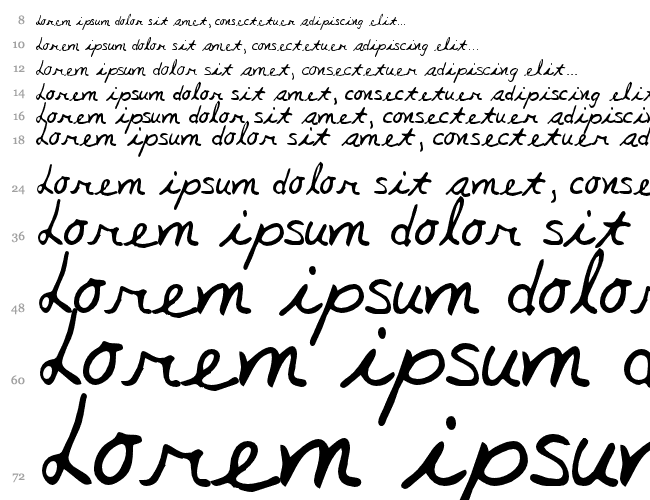 8 Lorem ipsum dolor sit amet, consectetuer adipiscing elit...
10 Lorem ipsum dolor sit amet, consectetuer adipiscing elit...
12 Lorem ipsum dolor sit amet, consectetuer adipiscing elit...
14 Lorem ipsum dolor sit amet, consectetuer adipiscing elit
16 Lorem ipsum dolor sit amet, consectetuer adipiscin
18 Lorem ipsum dolor sit amet, consectetuer ad
24 Lorem ipsum dolor sit amet, conse
36 Lorem ipsum dolor sit
48 Lorem ipsum dolor
60 Lorem ipsum d
72 Lorem ipsum